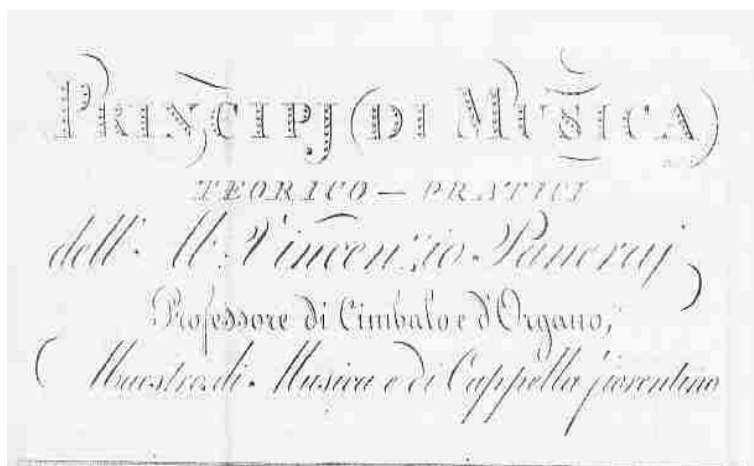 PRINCIPJ DI MUSICA
TEORICO — PRATICI
dell' Ab. Vincenzio Paneraj,
Professore di Cimbalo e d'Organo,
Maestro di Musica e di Cappella fiorentino